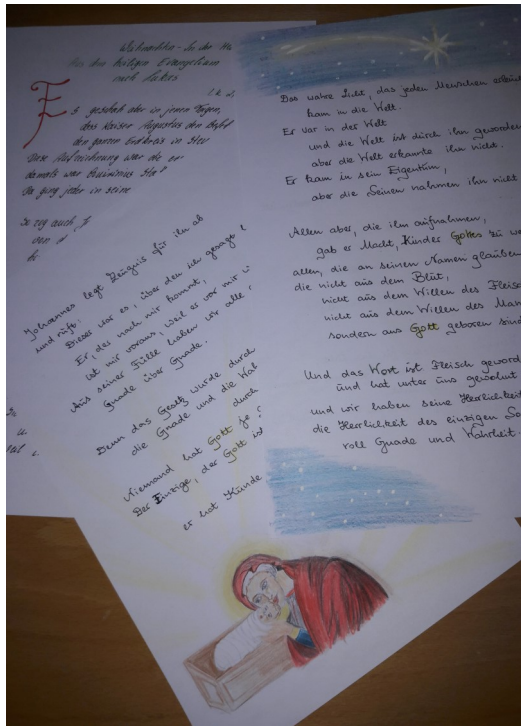 Weihnachten - In der
Aus dem heiligen Evangelium
nach Lukas
Es geschah aber in jenen Tagen,
dass Kaiser Augustus den Befehl
den ganzen Erdkreis in
Diese Aufzeichnung war die
damals war Quirinius
Da ging jeder in seine
So zog auch
von
Johannes legt Zeugnis für ihn ab
und ruft:
Dieser war es, über den ich gesagt
Er, der nach mir kommt,
ist mir voraus, weil er vor mir
Aus seiner Fülle haben wir alle
Gnade über Gnade.
Denn das Gesetz wurde durch
die Gnade und die
durch
Niemand hat Gott je
Der Einzige, der Gott ist
er hat Kunde
Das wahre Licht, das jeden Menschen
kam in die Welt.
Er war in der Welt
und die Welt ist durch ihn geworden
aber die Welt erkannte ihn nicht.
Er kam in sein Eigentum,
aber die Seinen nahmen ihn nicht
Allen aber, die ihn aufnahmen,
gab er Macht, Kinder Gottes zu
allen, die an seinen Namen glauben
die nicht aus dem Blut,
nicht aus dem Willen des Fleisch
nicht aus dem Willen des Man
sondern aus Gott geboren sind
Und das Wort ist Fleisch geword
und hat unter uns gewohnt
und wir haben seine Herrlichkeit
die Herrlichkeit des einzigen So
voll Gnade und Wahrheit.